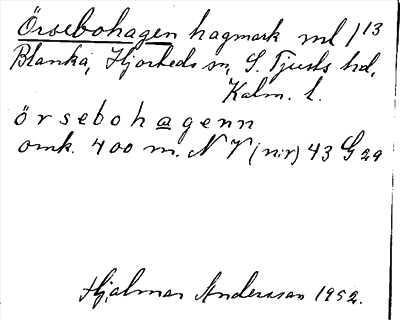 Örsebohagen hagmark ml 1/13
Blanka, Hjorteds sn, S. Tjusts hd,
Kalm. l.
örsebohagenn
omk. 400 m. NV (nr) 43 G 29
Hjalmar Andersson 1952.